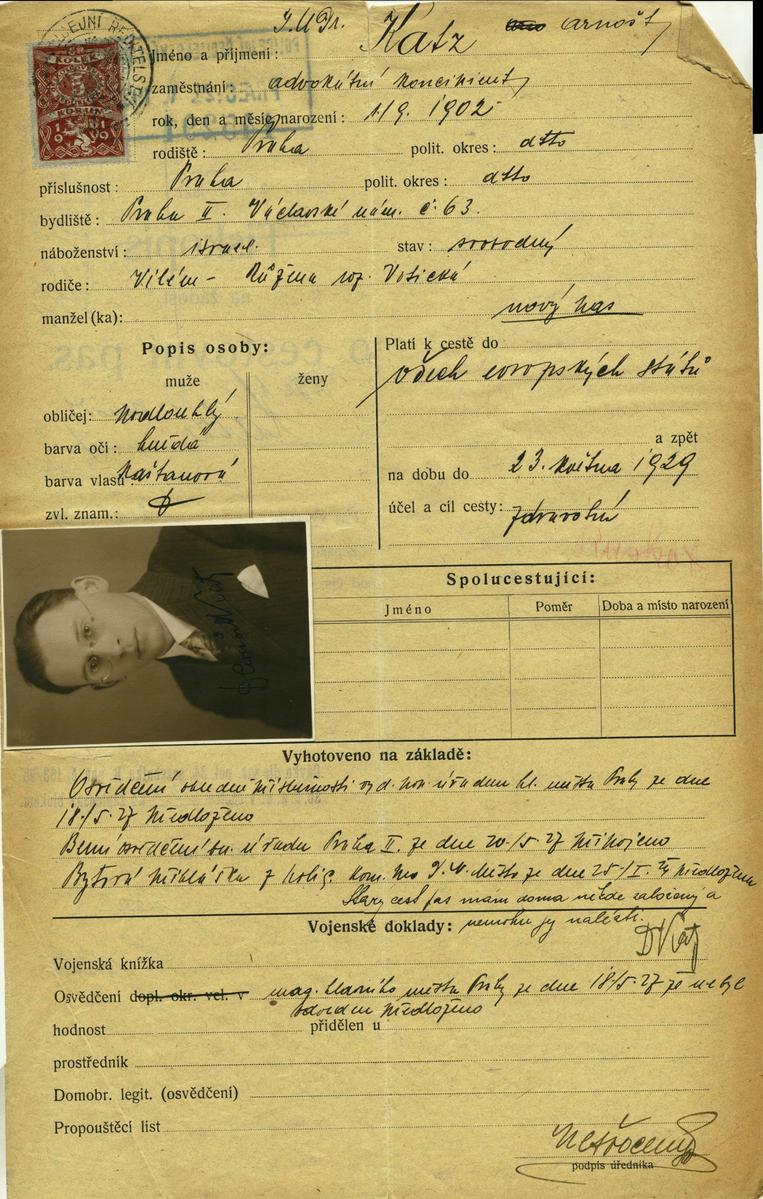 J.U.Dr. Katz Arnošt
Jméno a příjmení:
zaměstnání: advokátní koncipient
rok, den a měsíc narození: 1/9. 1902
rodiště: Praha polit. okres: dtto
příslušnost: Praha polit. okres: dtto
bydliště: Praha II. Václavské nám. č. 63.
náboženství: israel. stav: svobodný
rodiče: Vilém - Růžena roz. Votická
manžel(ka):
nový pas
Popis osoby: Platí k cestě do
všech evropských států
muže ženy
obličej: podlouhlý
barva očí: hnědá a zpět
barva vlasů kaštanová na dobu do 23. května 1929
zvl. znam.: účel a cíl cesty: zdravotní
Spolucestující:
Jméno Poměr Doba a místo narození
Vyhotoveno na základě:
Osvědčení o příslušnosti vyd. úřadem hl. města Prahy ze dne
18/5. 27 předloženo
Berní osvědčení úřadu Praha II. ze dne 20/5. 27 připojeno
Bytová přihláška z polic. kom. pro ze dne 25/I. předložena
Starý cest. pas mám doma někde založený a
nemohu jej nalézti.
DrKatz
Vojenské doklady:
Vojenská knížka
Osvědčení dopl. okr. vel. v mag. hlavního města Prahy ze dne 18/5. 27 že nebyl
odveden předloženo
hodnost přidělen u
prostředník
Domobr. legit. (osvědčení)
Propouštěcí list
podpis úředníka